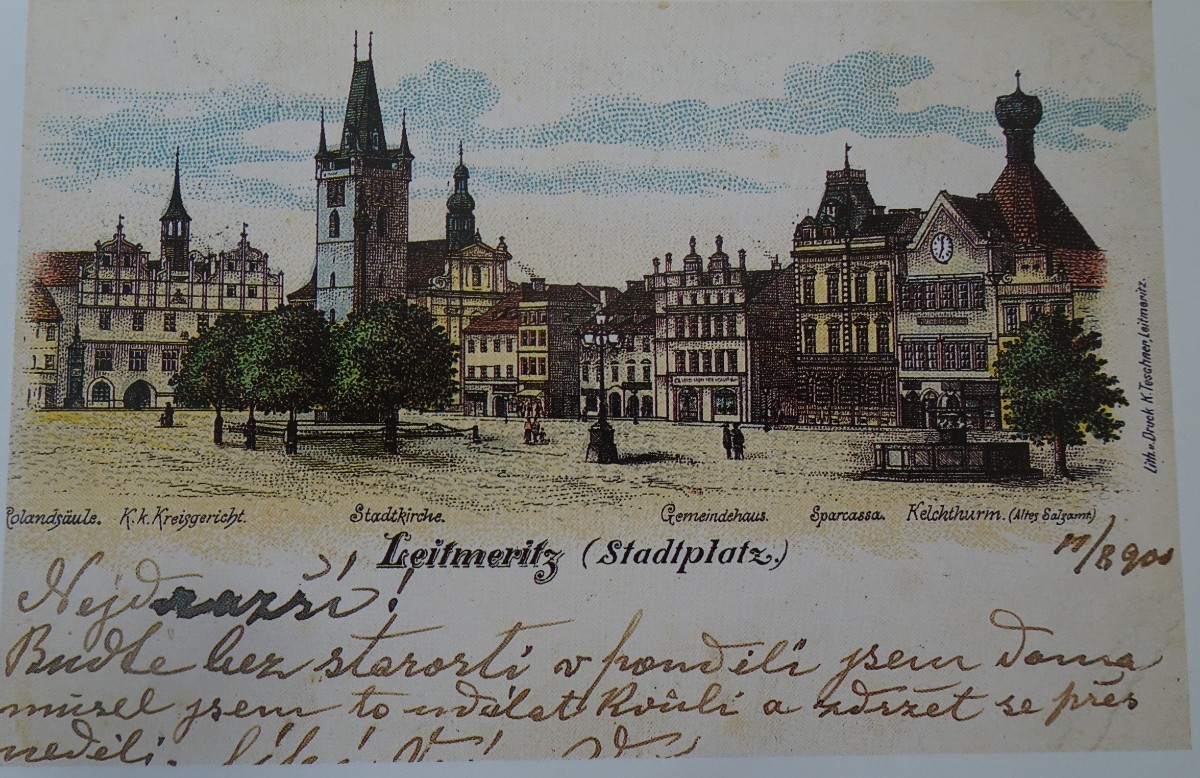 Rolandsäule. K.k. Kreisgericht. Stadtkirche. Gemeindehaus. Sparcassa. Kelchthurm. (Altes Salzamt.)
Leitmeritz (Stadtplatz.)
Lith. u. Druck K. Teschner, Leitmeritz.
11/8 900
Nejdražší!
Buďte bez starosti v ponděli jsem doma
můsel jsem to udělat kvůli a zdržet se přes
neděli.